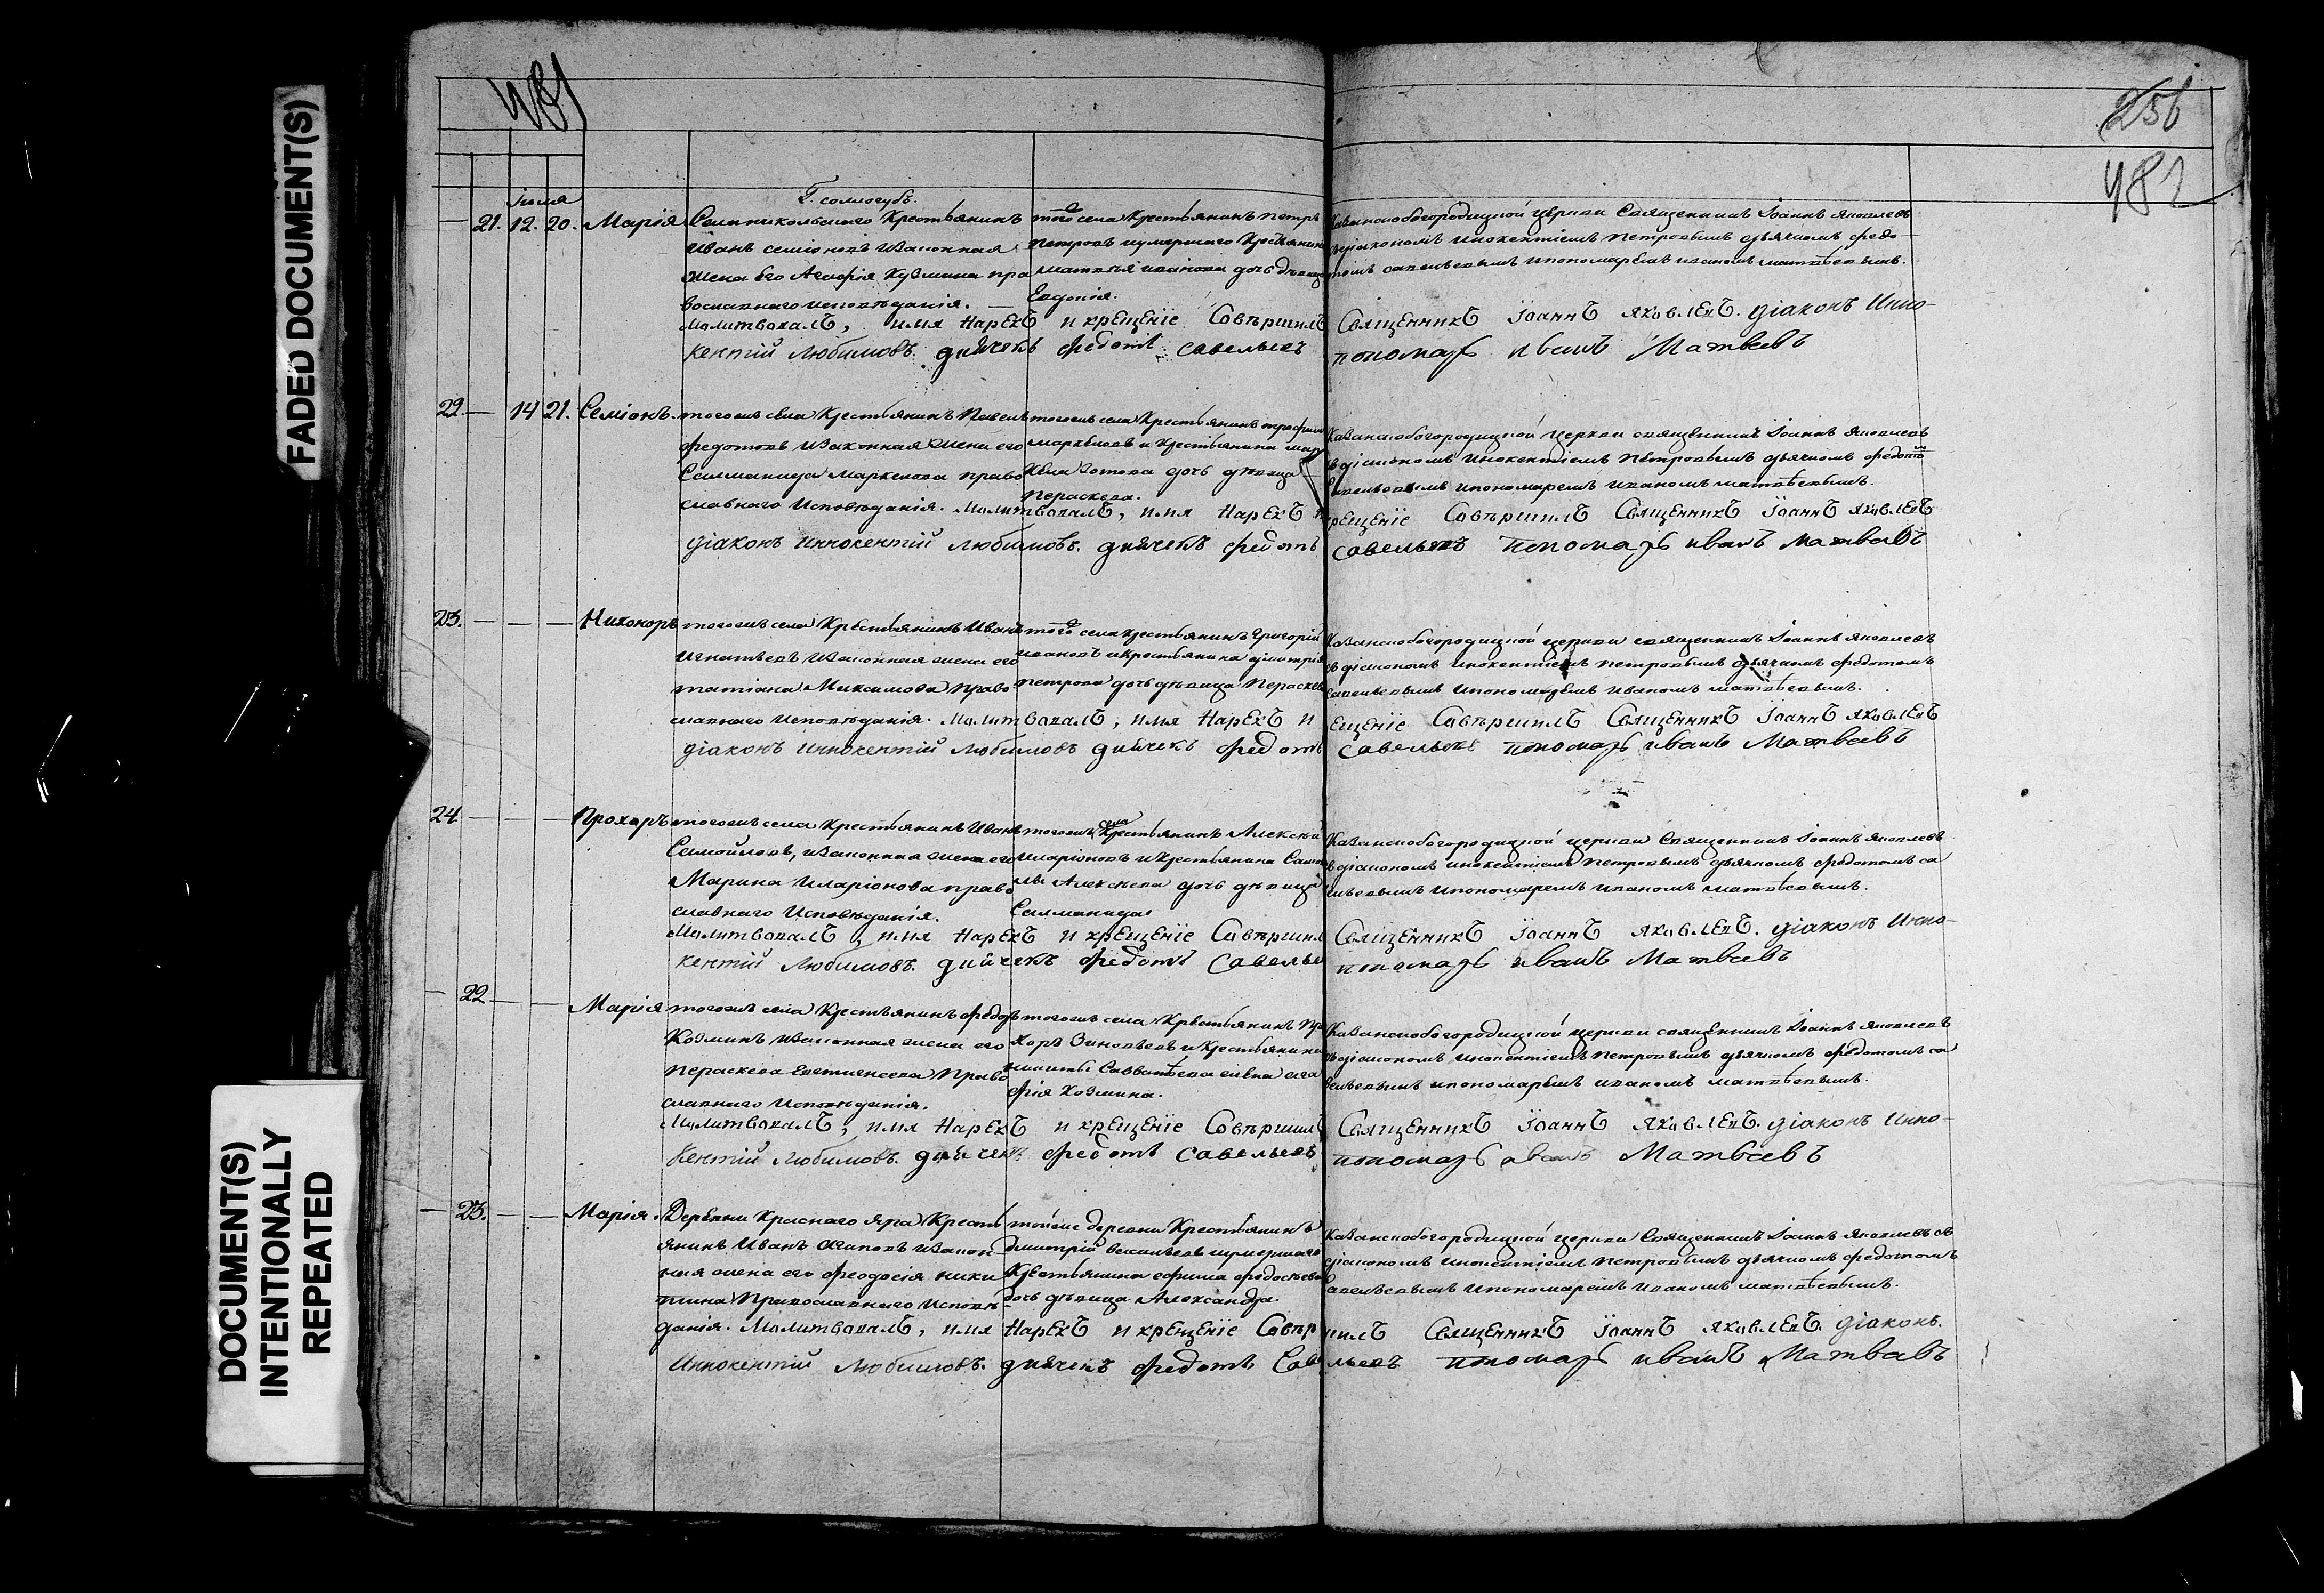 FADED DOCUMENT(S)
DOCUMENT(S)
INTENTIONALLY
REPEATED
481
256
482
Іюля
Г. сологубъ.
21. 12. 20. Марія
Села никольскаго Крестьянинъ
Иванъ семіоновъ изаконная
жена его Агафія Кузмина пра
вославнаго исповѣданія. —
того села Крестьянинъ петръ
петровъ иумершаго Крестьянина
матвѣя иванова дочь дѣвица
Евдокія.
Казанскобогородицкой церкви Священникъ Іоаннъ яковлевъ
съдіакономъ инокентіемъ петровымъ дьячкомъ федо
томъ савельевымъ ипономаремъ иваномъ матвѣевымъ.
Молитвовалъ, имя нарекъ и крещеніе Совѣршилъ Священникъ Іоаннъ яковлевъ. діаконъ Инно-
кентій Любимовъ. дьячекъ федотъ савельевъ пономарь иванъ Матвеевъ
22. — 14 21. Семіонъ.
тогожъ села Крестьянинъ Павелъ
федотовъ изаконная жена его
Саламанида Маркелова право
славнаго исповѣданія.
тогожъ села Крестьянинъ трофимъ
маркеловъ и крестьянина мар
кела Зотова дочь дѣвица
Пераскева.
Казанскобогородицкой церкви священникъ Іоаннъ яковлевъ
съдіакономъ инокентіемъ петровымъ дьячкомъ федотомъ
Савельевымъ ипономаремъ иваномъ матвѣевымъ.
Молитвовалъ, имя нарекъ и крещеніе Совѣршилъ Священникъ Іоаннъ яковлевъ
діаконъ Иннокентій Любимовъ. дьячекъ федотъ савельевъ пономарь иванъ матвеевъ
23. — — — Никоноръ
тогожъ села Крестьянинъ Иванъ
Игнатьевъ изаконная жена его
татіана Максимова право
славнаго исповѣданія.
того села крестьянинъ григорій
ивановъ икрестьянина димитрія
петрова дочь дѣвица Пераскева
Казанскобогородицкой церкви священникъ Іоаннъ яковлевъ
съ діакономъ инокентіемъ петровымъ дьячкомъ федотомъ
савельевымъ ипономаремъ иваномъ матвѣевымъ.
Молитвовалъ, имя нарекъ и крещеніе Совѣршилъ Священникъ Іоаннъ яковлевъ
діаконъ Иннокентій Любимовъ дьячекъ федотъ савельевъ пономарь иванъ Матвеевъ
24. — — — Прохоръ
тогожъ села Крестьянинъ Иванъ
Самойловъ, изаконная жена его
Марина Иларіонова право
славнаго Исповѣданія.
тогожъ села Крестьянинъ Алексѣй
иларіоновъ икрестьянина Самой
лы Алексѣева дочь дѣвица
Саламанида
Казанскобогородицкой церкви Священникъ Іоаннъ яковлевъ
съдіакономъ инокентіемъ петровымъ дьячкомъ федотомъ са
вельевымъ ипономаремъ иваномъ матвѣевымъ.
Молитвовалъ, имя нарекъ и крещеніе Совѣршилъ Священникъ Іоаннъ яковлевъ. діаконъ Инно-
кентій Любимовъ. дьячекъ федотъ Савельевъ пономарь иванъ Матвеевъ
— 22 — — Марія
тогожъ села Крестьянинъ федоръ
Козминъ изаконная жена его
Пераскева Право
славнаго исповѣданія.
тогожъ села Крестьянинъ Про
хоръ Зиновьевъ икрестьянина
никиты Савватѣева жена ага
фія Козмина.
Казанскобогородицкой церкви священникъ Іоаннъ яковлевъ
съдіакономъ инокентіемъ петровымъ дьячкомъ федотомъ са
вельевымъ ипономаремъ иваномъ матвѣевымъ.
Молитвовалъ, имя нарекъ и крещеніе Совѣршилъ Священникъ Іоаннъ яковлевъ. діаконъ Инно-
кентій Любимовъ. дьячекъ федотъ савельевъ пономарь иванъ Матвеевъ
— 23. — — Марія.
Деревни Краснаго яра Кресть
янинъ Иванъ Осиповъ изакон
ная жена его феодосія ники
тина Православнаго исповѣ
данія.
тойже деревни Крестьянинъ
дмитрій васильевъ иумершаго
Крестьянина ефима федосѣева
дочь дѣвица Александра.
Казанскобогородицкой церкви Священникъ Іоаннъ яковлевъ съ
діакономъ инокентіемъ петровымъ дьячкомъ федотомъ
савельевымъ ипономаремъ иваномъ матвѣевымъ.
Молитвовалъ, имя нарекъ и крещеніе Совѣршилъ Священникъ Іоаннъ яковлевъ. діаконъ.
Иннокентій Любимовъ. дьячекъ федотъ Савельевъ пономарь иванъ Матвеевъ